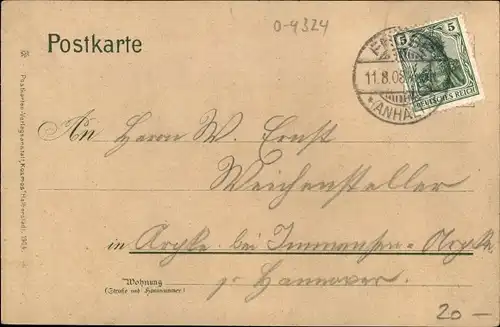 0-4324
Postkarte
5 5
11.8.08
*(ANHALT)
DEUTSCHES REICH
An Herrn W. Ernst
Weichensteller
in Arpke bei Immensen-Arpke
Hannover.
Wohnung
(Straße und Hausnummer)
20 -
Postkarten-Verlagsanstalt „Kosmos“ Halberstadt. 1904